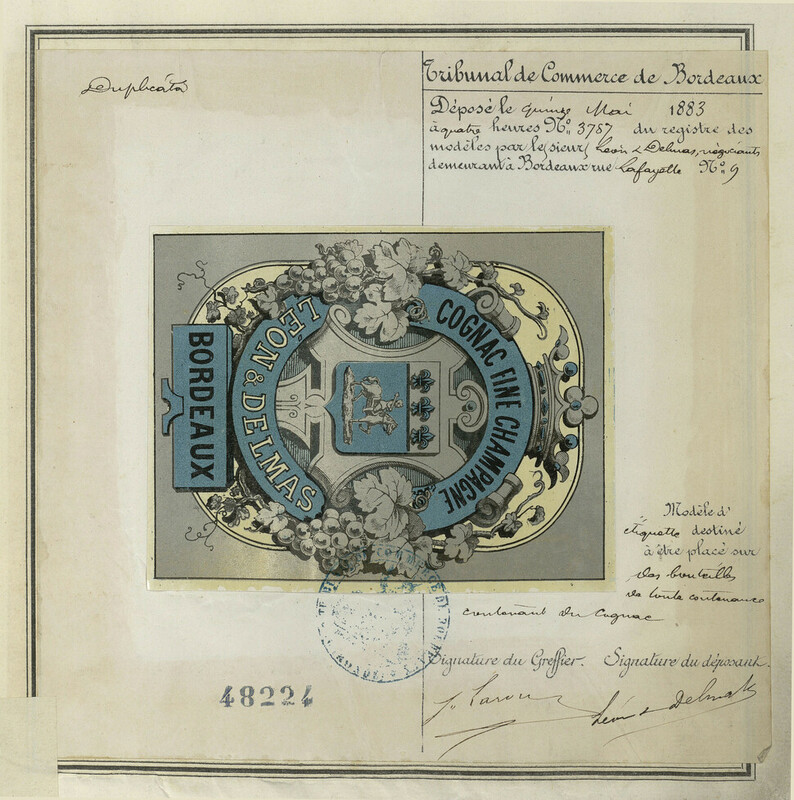 Duplicata
Tribunal de Commerce de Bordeaux
Déposé le quinze Mai 1883
à quatre heures Nº 3787 du registre des
modèles par le sieurs Léon & Delmas, négociants
demeurant à Bordeaux rue Lafayette Nº 9
COGNAC FINE CHAMPAGNE
LÉON & DELMAS
BORDEAUX
Modèle d'
étiquette destiné
à être placé sur
des bouteilles
de toute contenance
contenant du Cognac
Signature du Greffier. Signature du déposant.
Léon & Delmas
48224